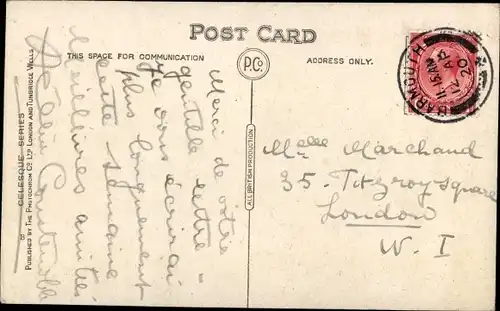 POST CARD
THIS SPACE FOR COMMUNICATION
P.Co.
ADDRESS ONLY.
BARMOUTH
11.15 AM
12 AP
20
Merci de votre
gentille lettre –
Je vous écrirai
plus longuement
cette semaine
Meilleures amitiés
Constable
Melle Marchand
35. Fitzroy Square
London
W. I
ALL BRITISH PRODUCTION
CELESQUE SERIES
PUBLISHED BY THE PHOTOCHROM CO. LTD. LONDON AND TUNBRIDGE WELLS